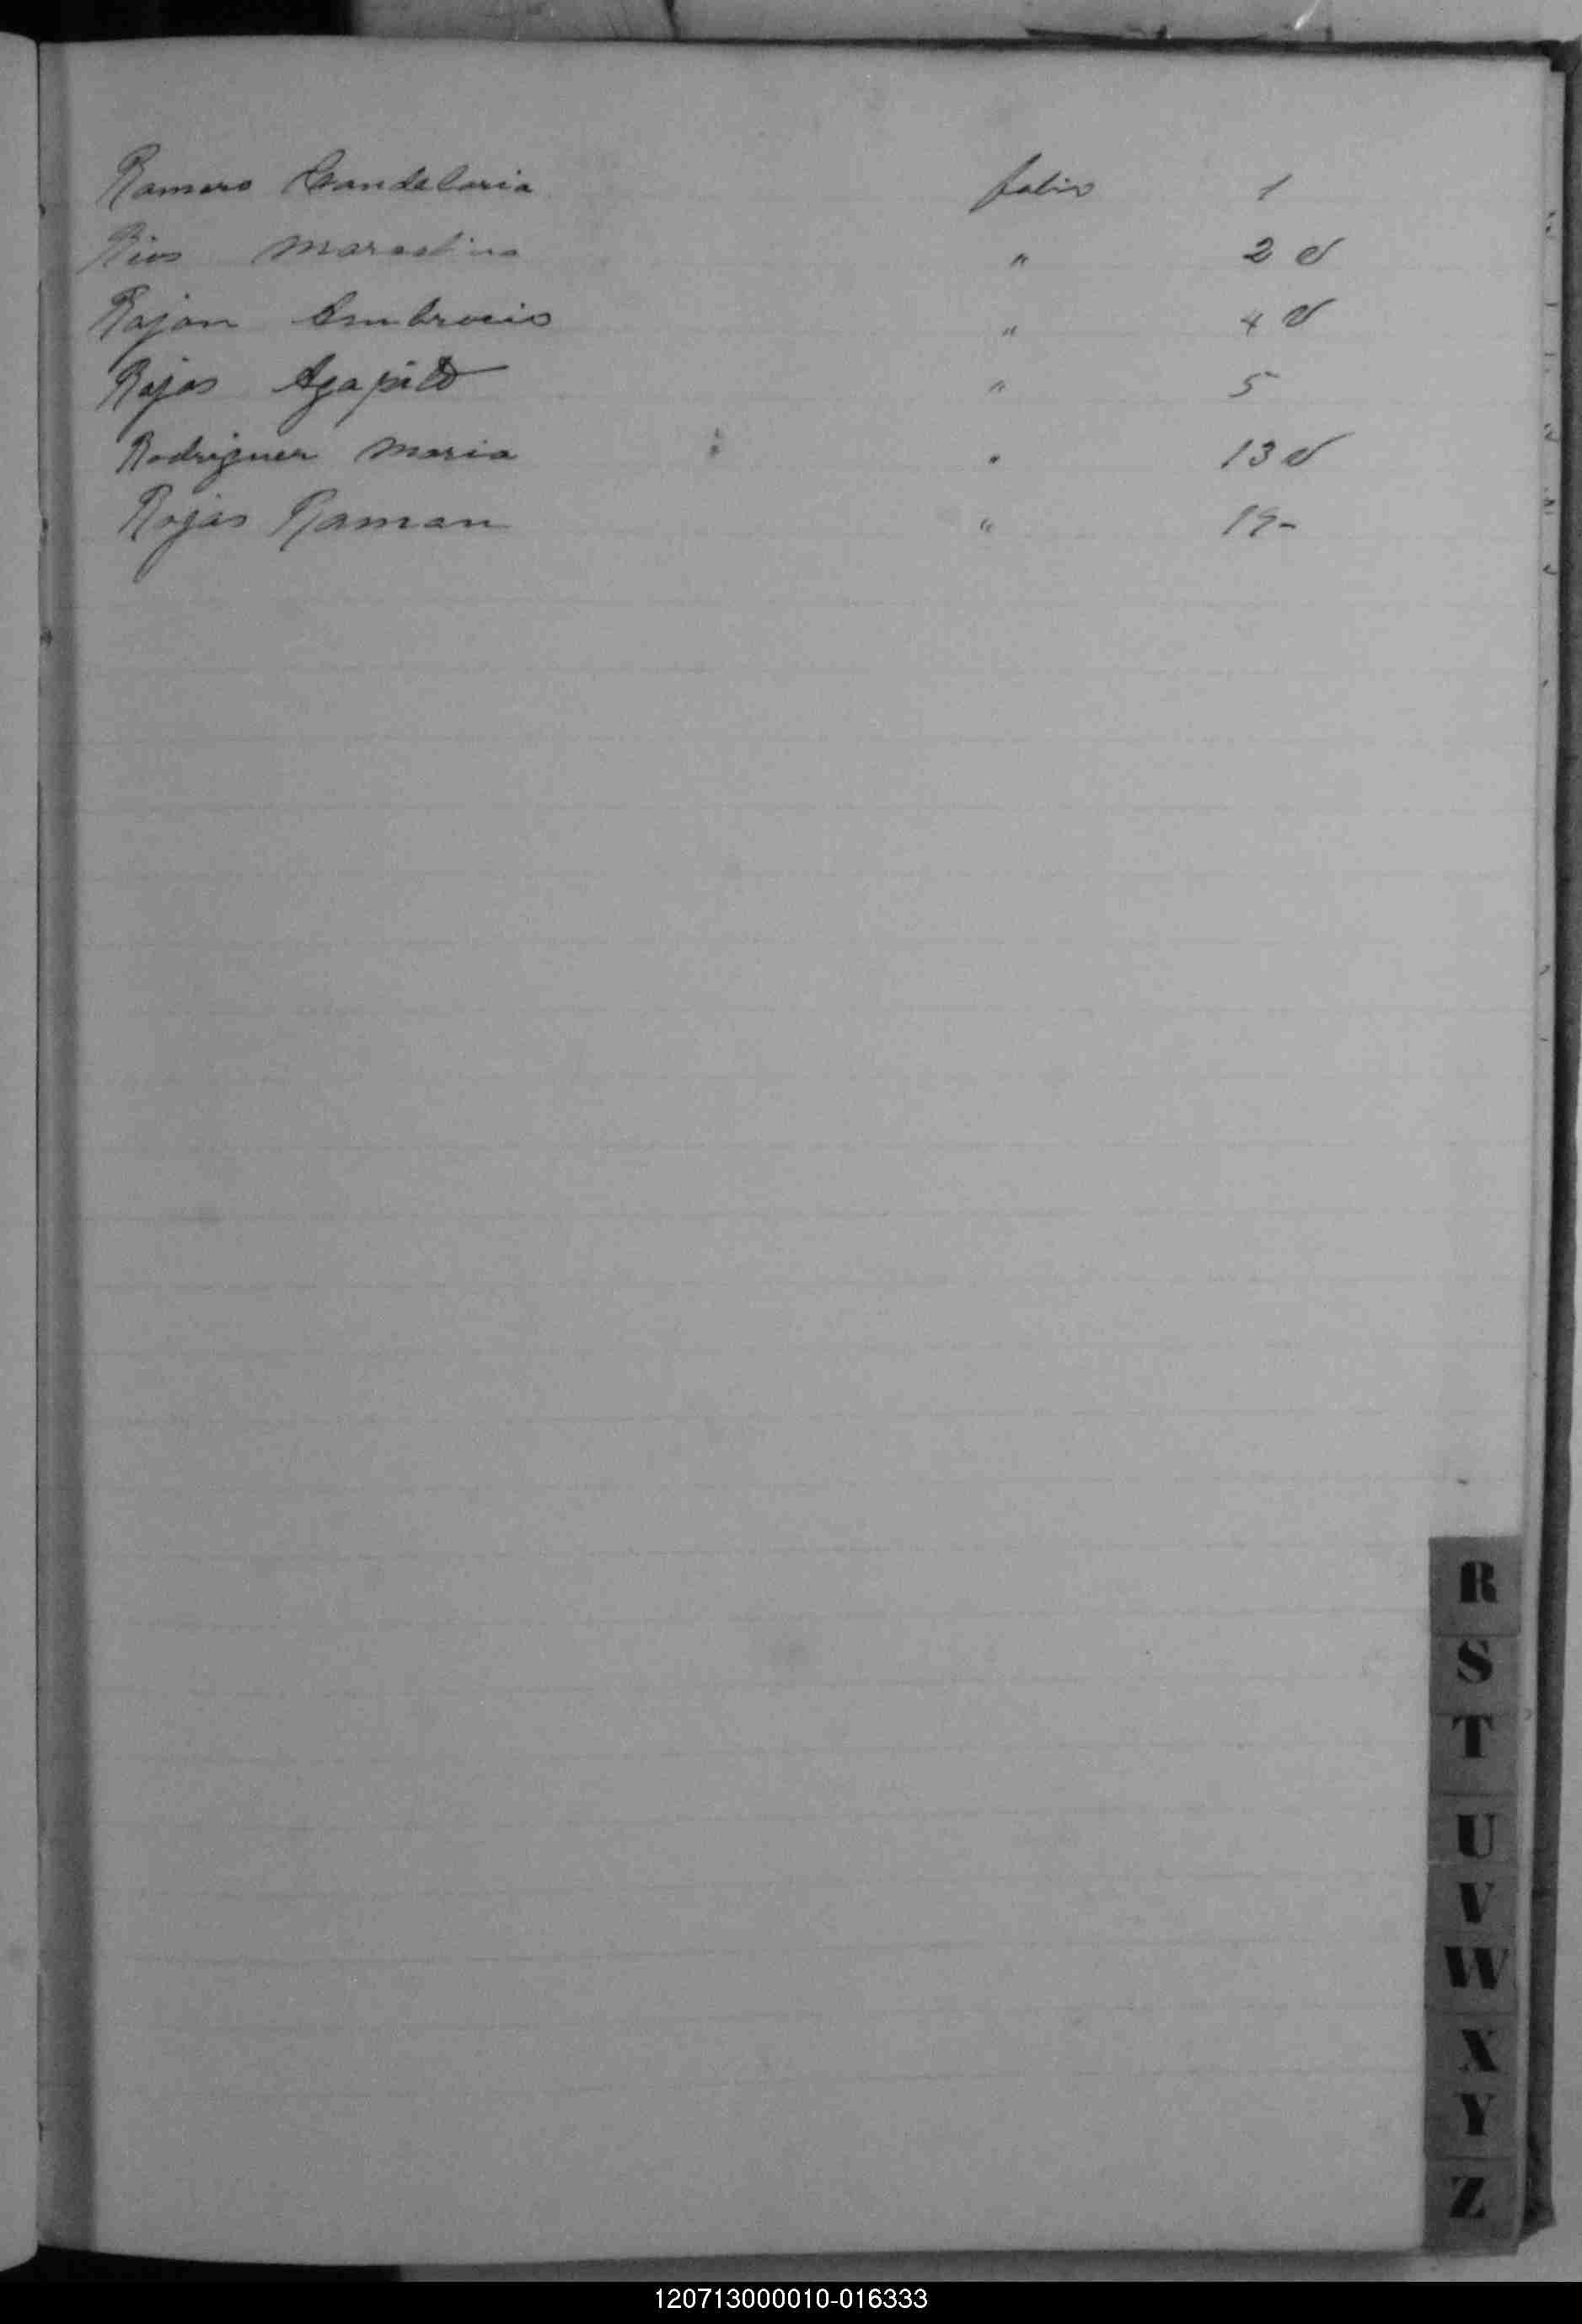 Romero Candelaria folio 1
Rios Marcelina " 2 d
Rojas Ambrocio " 4 d
Rojas Agapito " 5
Rodriguez Maria " 13 d
Rojas Ramon " 19-
R
S
T
U
V
W
X
Y
Z
120713000010-016333